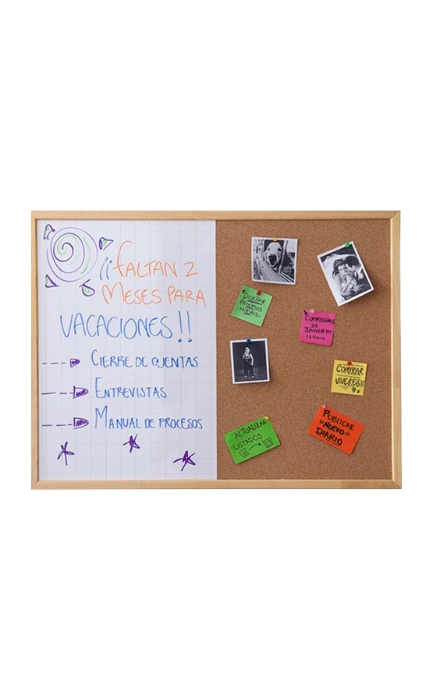 ¡¡FALTAN 2
MESES PARA
VACACIONES!!
CIERRE DE CUENTAS
ENTREVISTAS
MANUAL DE PROCESOS
CUMPLEAÑOS
DE
COMPRAR
VIVERES!!
PUBLICAR
"NUEVO"
DIARIO
ACTUALIZAR
LISTADOS